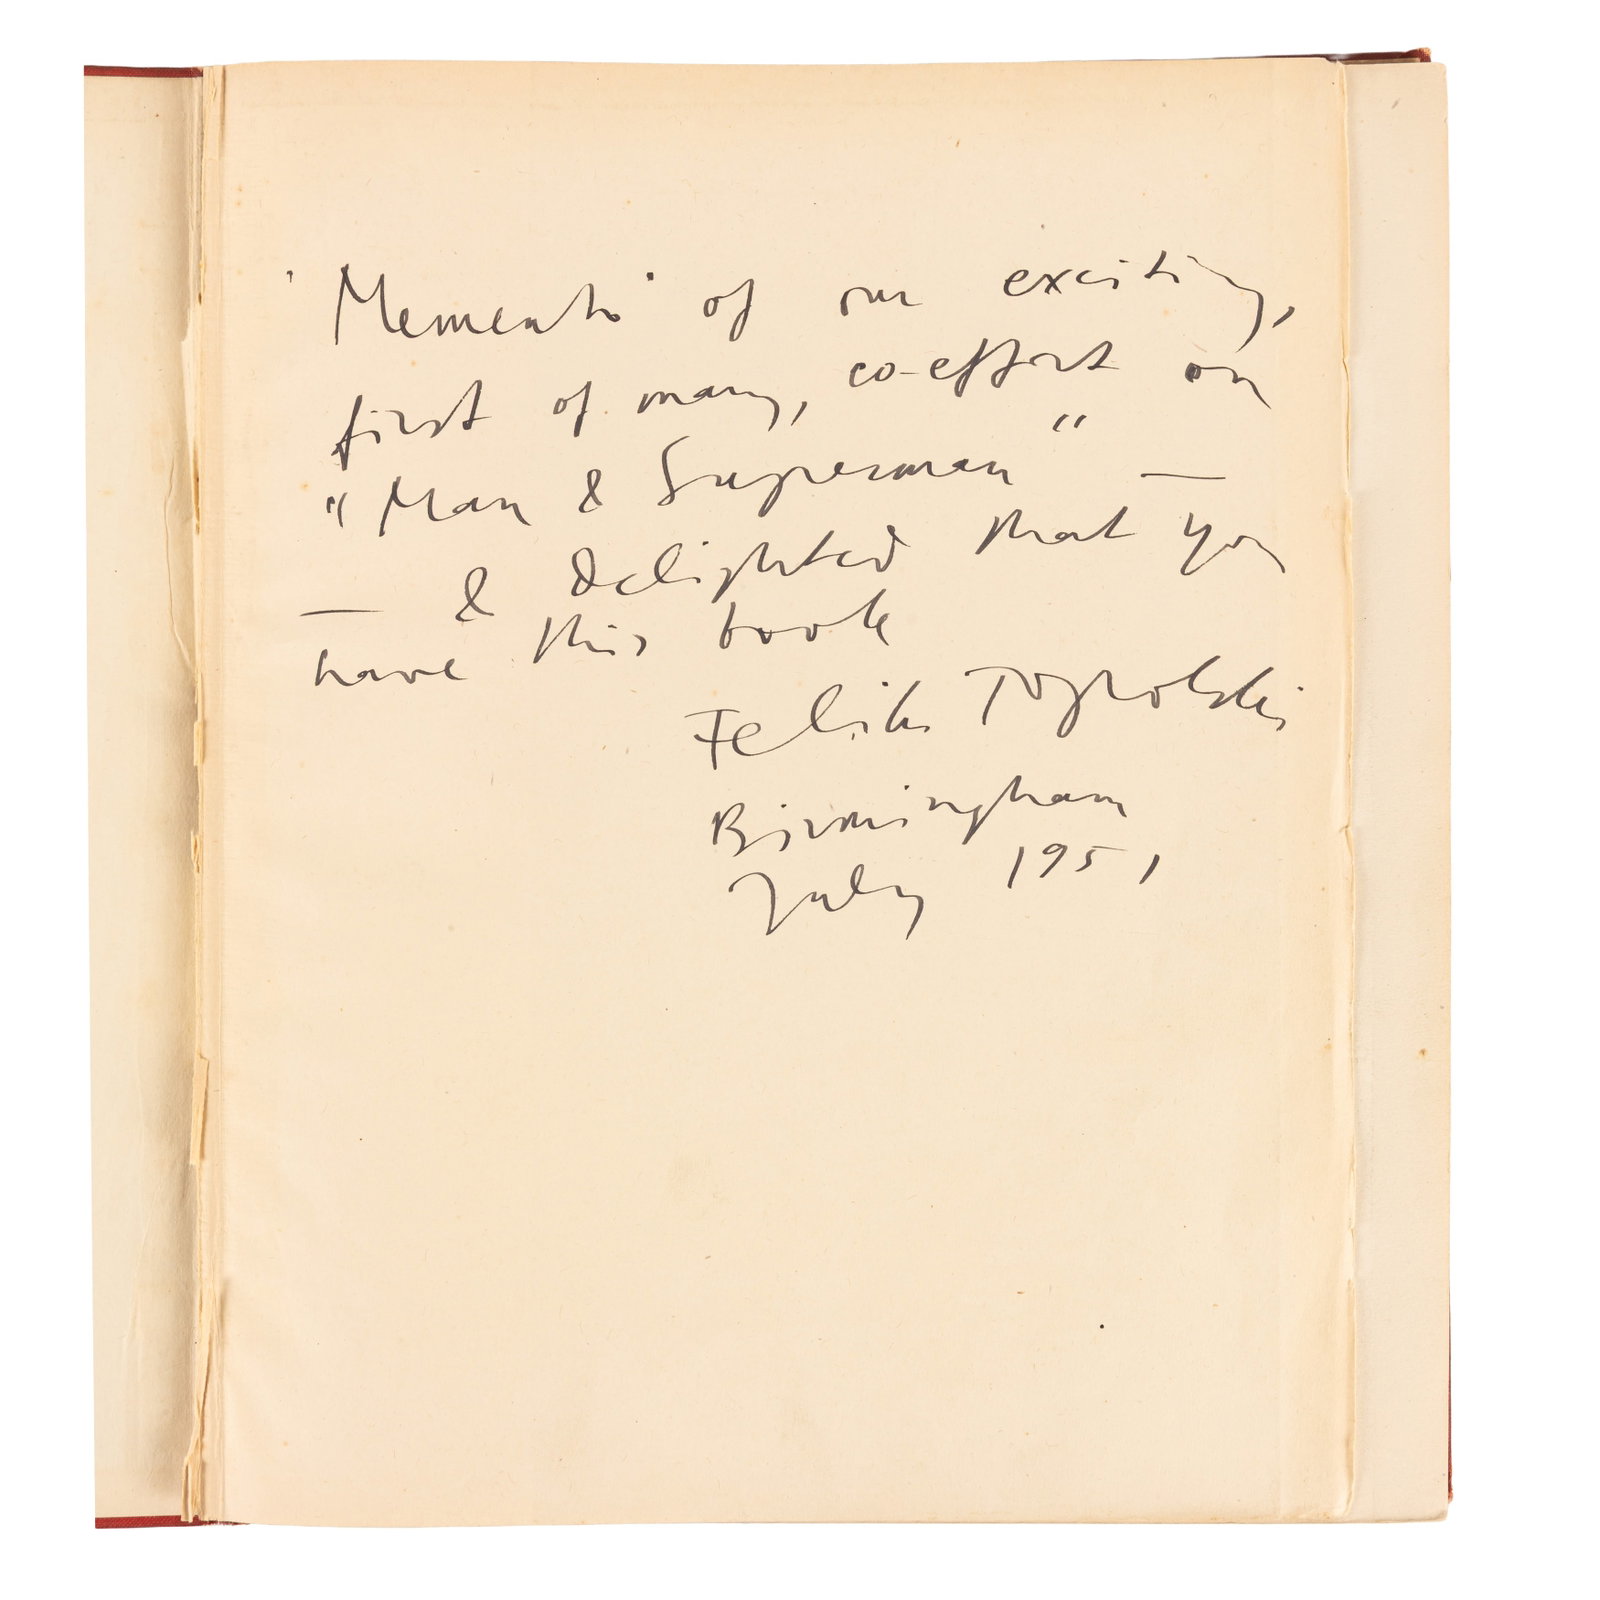 'Memento' of our exciting,
first of many, co-effort on
"Man & Superman" —
— & delighted that you
have this book
Feliks Topolski
Birmingham
July 1951